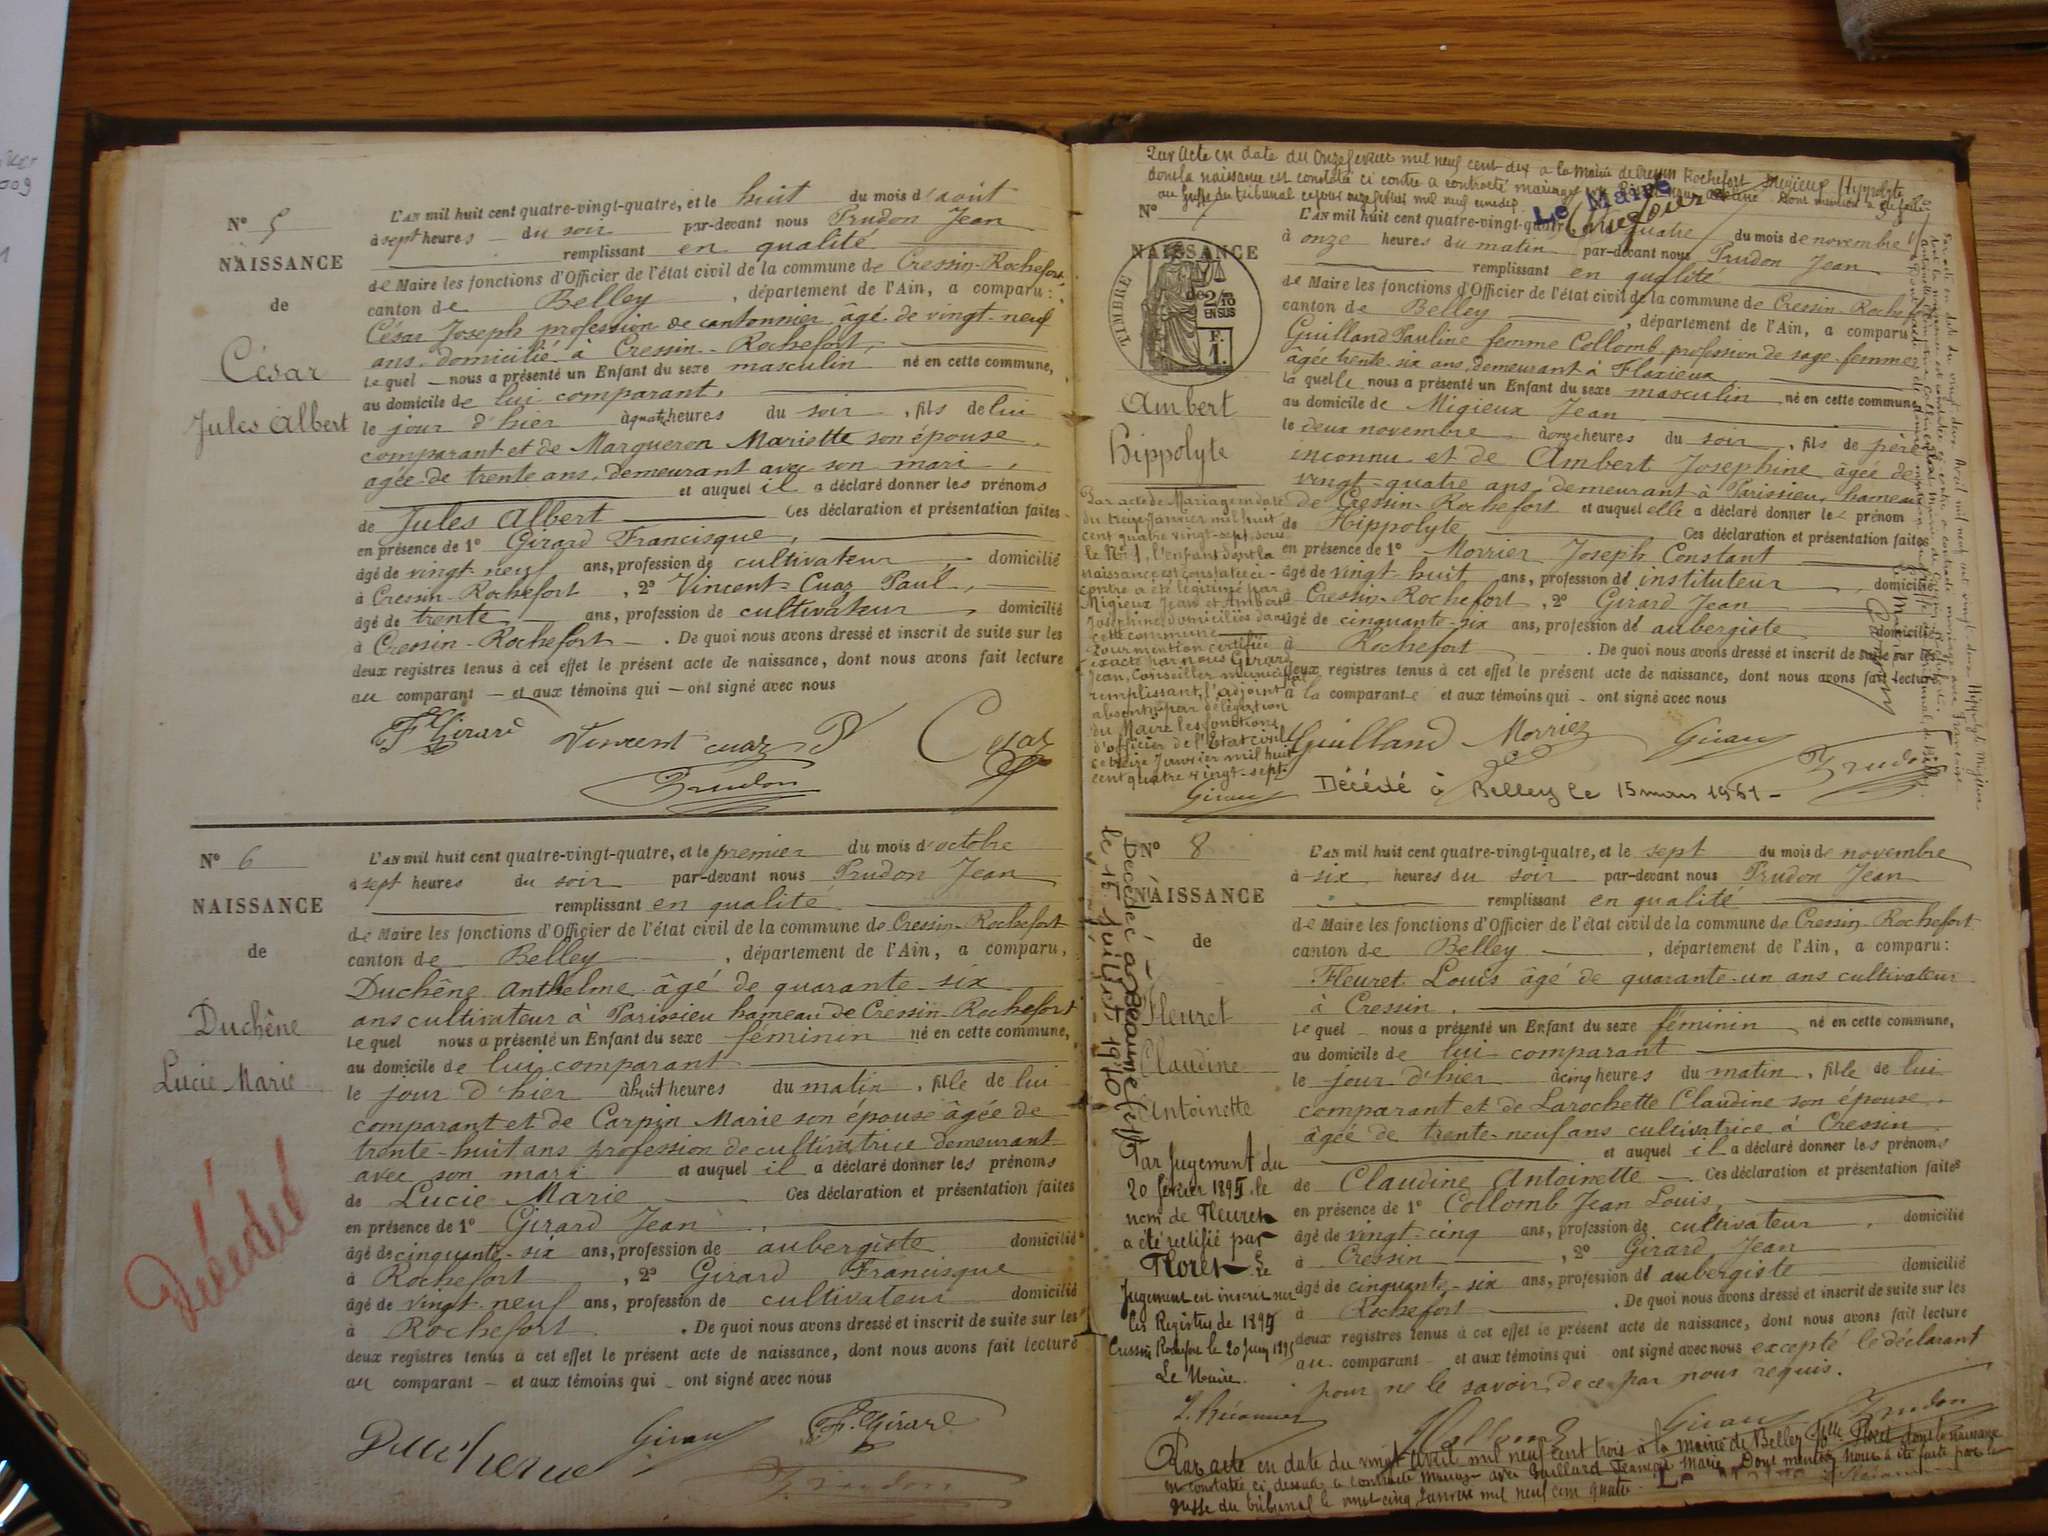 N° 5
NAISSANCE
de
César
Jules Albert
L'AN mil huit cent quatre-vingt-quatre, et le huit du mois d'août
à sept heures du soir par-devant nous Prudon Jean
remplissant en qualité
de Maire les fonctions d'Officier de l'état civil de la commune de Cressin-Rochefort,
canton de Belley, département de l'Ain, a comparu:
César Joseph profession de cantonnier âgé de vingt-neuf
ans domicilié à Cressin-Rochefort,
lequel nous a présenté un Enfant du sexe masculin né en cette commune,
au domicile de lui comparant,
le jour d'hier à quatre heures du soir, fils de lui
comparant et de Margueron Mariette son épouse
agée de trente ans, demeurant avec son mari,
et auquel il a déclaré donner les prénoms
de Jules Albert Ces déclaration et présentation faites
en présence de 1° Girard Francisque,
âgé de vingt-neuf ans, profession de cultivateur, domicilié
à Cressin-Rochefort, 2° Vincent-Cuaz Paul,
âgé de trente ans, profession de cultivateur, domicilié
à Cressin-Rochefort. De quoi nous avons dressé et inscrit de suite sur les
deux registres tenus à cet effet le présent acte de naissance, dont nous avons fait lecture
au comparant et aux témoins qui ont signé avec nous
F Girard Vincent cuaz P Cesar
Prudon
N° 6
NAISSANCE
de
Duchêne
Lucie Marie
Décédée
L'AN mil huit cent quatre-vingt-quatre, et le premier du mois d'octobre
à sept heures du soir par-devant nous Prudon Jean
remplissant en qualité
de Maire les fonctions d'Officier de l'état civil de la commune de Cressin-Rochefort
canton de Belley, département de l'Ain, a comparu,
Duchêne Anthelme âgé de quarante-six
ans cultivateur à Parissieu hameau de Cressin-Rochefort
lequel nous a présenté un Enfant du sexe féminin né en cette commune,
au domicile de lui comparant
le jour d'hier à huit heures du matin, fille de lui
comparant et de Carpin Marie son épouse âgée de
trente-huit ans profession de cultivatrice demeurant
avec son mari et auquel il a déclaré donner les prénoms
de Lucie Marie Ces déclaration et présentation faites
en présence de 1° Girard Jean
âgé de cinquante-six ans, profession de aubergiste domicilié
à Rochefort, 2° Girard Francisque
âgé de vingt-neuf ans, profession de cultivateur domicilié
à Rochefort. De quoi nous avons dressé et inscrit de suite sur les
deux registres tenus à cet effet le présent acte de naissance, dont nous avons fait lecture
au comparant et aux témoins qui ont signé avec nous
Duchene Girard F. Girard
Prudon
Par acte en date du onze fevrier mil neuf cent dix a la mairie de Cressin Rochefort Migieux Hyppolyte
dont la naissance est constatée ci contre a contracté mariage
au Greffe du tribunal
Le Maire
N° 7
NAISSANCE
TIMBRE
de
2/10
EN SUS
F.
1.
Ambert
Hippolyte
Par acte de Mariage en date
du treize Janvier mil huit
cent quatre vingt-sept, sous
le N° 1, l'enfant dont la
naissance est constatée ci-
contre a été légitimé par
Migieux Jean et Ambert
Joséphine, domiciliés dans
cette commune
Pour mention certifiée
exacte par nous Girard
Jean, Conseiller municipal
remplissant, l'adjoint
absent, par délégation
du Maire les fonctions
d'officier de l'Etat civil
ce treize Janvier mil huit
cent quatre vingt-sept.
Girard
L'AN mil huit cent quatre-vingt-quatre, et le quatre du mois de novembre
à onze heures du matin par-devant nous Prudon Jean
remplissant en qualité
de Maire les fonctions d'Officier de l'état civil de la commune de Cressin-Rochefort
canton de Belley, département de l'Ain, a comparu
Guilland Pauline femme Collomb, profession de sage-femme,
âgée trente-six ans, demeurant à Flaxieux
laquelle nous a présenté un Enfant du sexe masculin né en cette commune,
au domicile de Migieux Jean
le deux novembre à onze heures du soir, fils de père
inconnu et de Ambert Josephine âgée de
vingt-quatre ans, demeurant à Parissieu, hameau
de Cressin-Rochefort et auquel elle a déclaré donner le prénom
de Hippolyte Ces déclaration et présentation faites
en présence de 1° Morrier Joseph Constant
âgé de vingt-huit ans, profession d'instituteur, domicilié
à Cressin-Rochefort, 2° Girard Jean
âgé de cinquante-six ans, profession d'aubergiste domicilié
à Rochefort. De quoi nous avons dressé et inscrit de suite sur les
deux registres tenus à cet effet le présent acte de naissance, dont nous avons fait lecture
à la comparante et aux témoins qui ont signé avec nous
Guilland Morrier Girard Prudon
Décédé à Belley le 15 mars 1961
N° 8
NAISSANCE
de
Fleuret
Claudine
Antoinette
Décédée à Beaumont
le 15 juillet 1970
Par Jugement du
20 fevrier 1895 le
nom de Fleuret
a été rectifié par
Floret. Le
Jugement est inscrit sur
les Registres de 1895
Cressin Rochefort le 20 Juin 1895
Le Maire
L'AN mil huit cent quatre-vingt-quatre, et le sept du mois de novembre
à six heures du soir par-devant nous Prudon Jean
remplissant en qualité
de Maire les fonctions d'Officier de l'état civil de la commune de Cressin-Rochefort
canton de Belley, département de l'Ain, a comparu:
Fleuret Louis âgé de quarante-un ans cultivateur
à Cressin.
lequel nous a présenté un Enfant du sexe féminin né en cette commune,
au domicile de lui comparant
le jour d'hier à cinq heures du matin, fille de lui
comparant et de Larochette Claudine son épouse
âgée de trente-neuf ans cultivatrice à Cressin
et auquel il a déclaré donner les prénoms
de Claudine Antoinette. Ces déclaration et présentation faites
en présence de 1° Collomb Jean Louis,
âgé de vingt-cinq ans, profession de cultivateur, domicilié
à Cressin, 2° Girard Jean
âgé de cinquante-six ans, profession d'aubergiste domicilié
à Rochefort. De quoi nous avons dressé et inscrit de suite sur les
deux registres tenus à cet effet le présent acte de naissance, dont nous avons fait lecture
au comparant et aux témoins qui ont signé avec nous excepté le déclarant
pour ne le savoir de ce par nous requis.
Collomb Girard Prudon
Par acte en date du vingt avril mil neuf cent trois à la mairie de Belley Floret dont la naissance
est constatée ci dessus a contracté mariage avec Gaillard François Marie. Dont mention nous a été faite par le
Greffe du tribunal le vingt cinq Janvier mil neuf cent quatre.